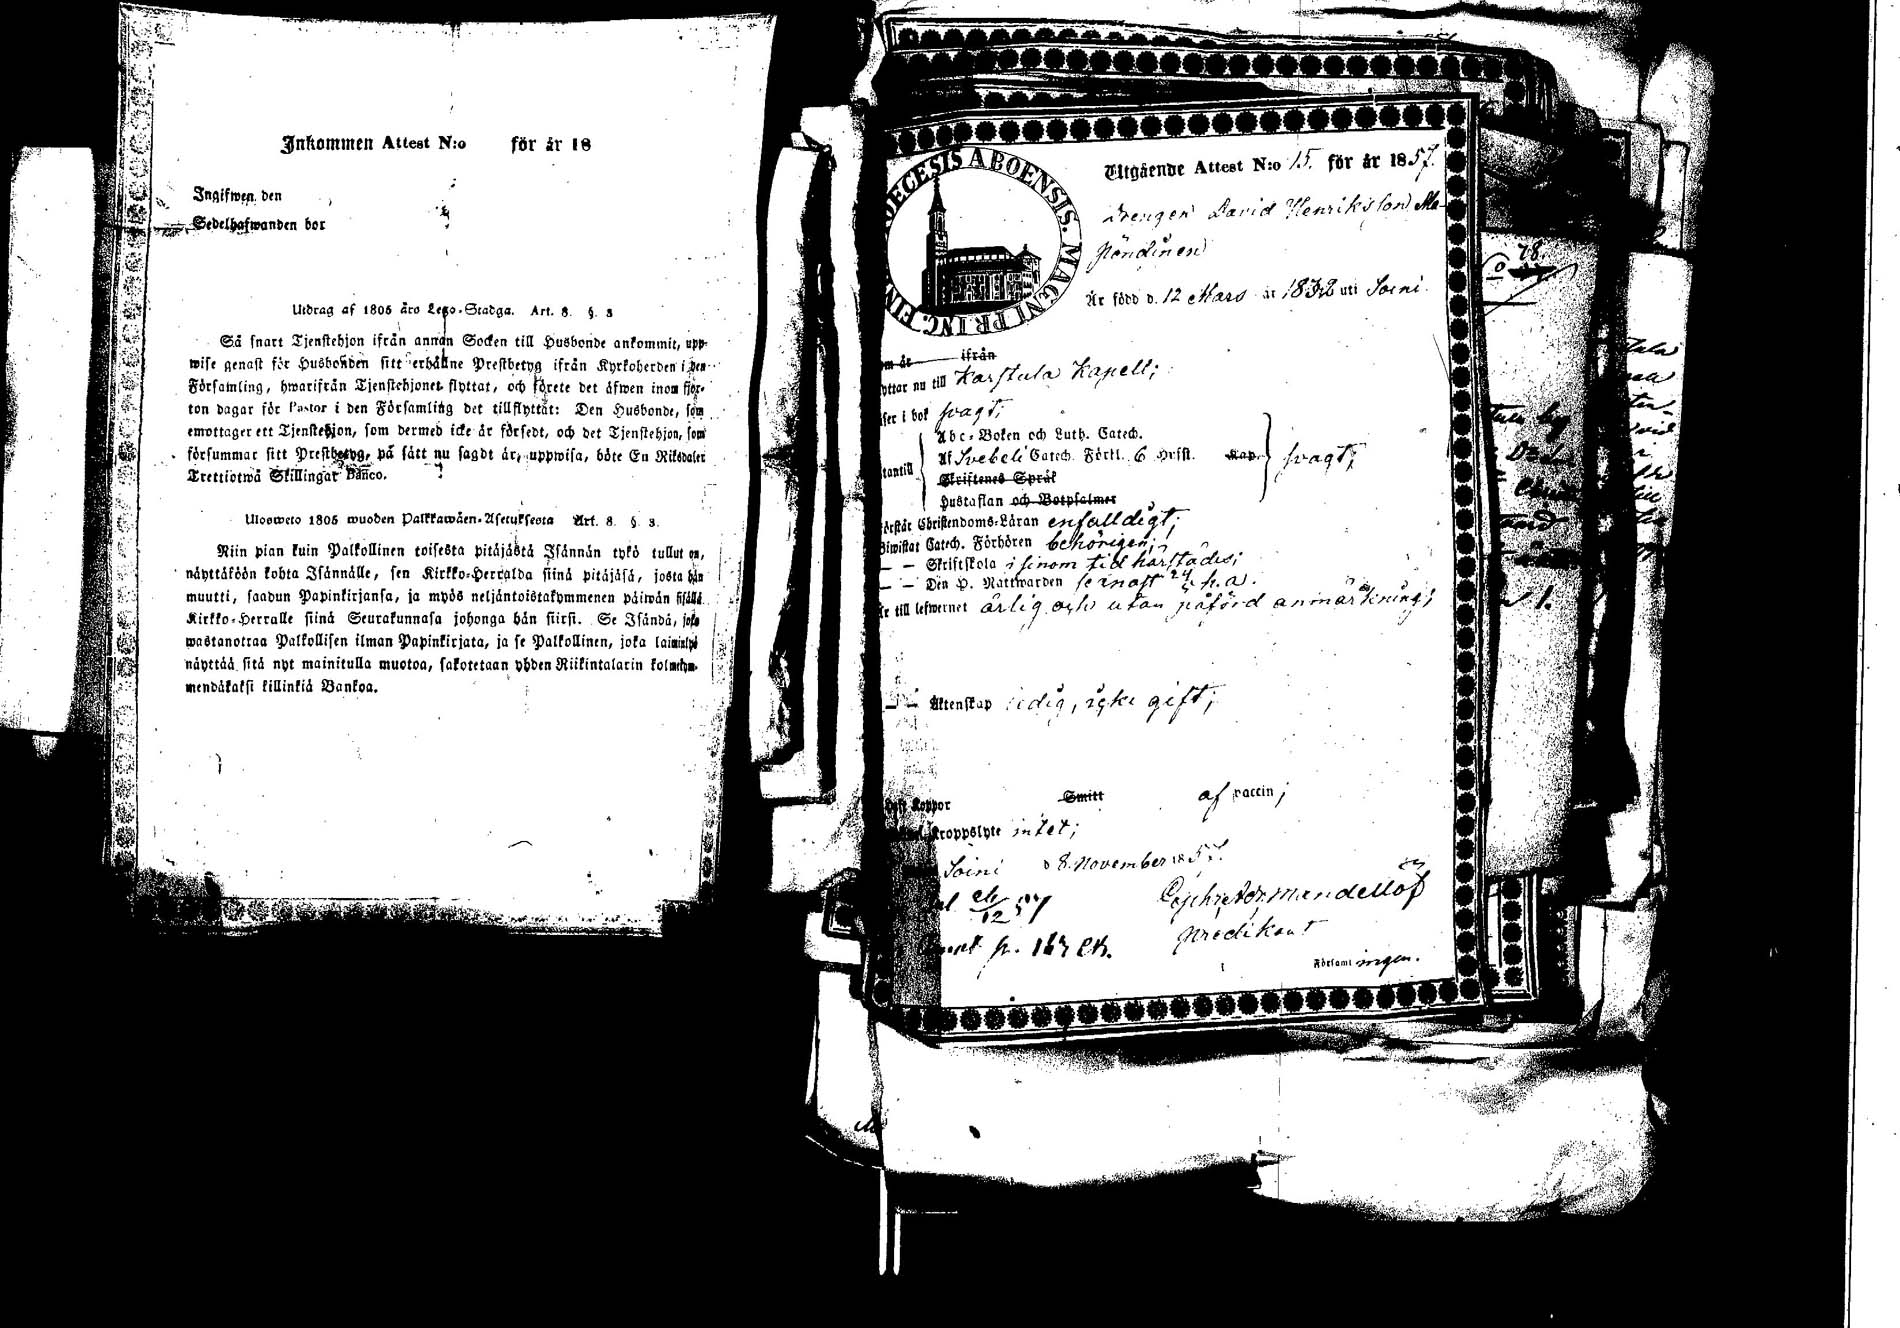 Inkommen Attest N:o för år 18
Ingifwen den
Sedelhafwanden bor
Utdrag af 1805 års Lego-Stadga. Art. 8. §. 3
Så snart Tjenstehjon ifrån annan Socken till Husbonde ankommit, upp-
wise genast för Husbonden sitt erhållne Prestbetyg ifrån Kyrkoherden i den
Församling, hwarifrån Tjenstehjonet flyttat, och förete det äfwen inom fjor-
ton dagar för Pastor i den Församling det tillflyttat: Den Husbonde, som
emottager ett Tjenstehjon, som dermed icke är försedt, och det Tjenstehjon, som
försummar sitt Prestbetyg, på sätt nu sagdt är, uppwisa, böte En Riksdaler
Trettiotwå Skillingar Banco.
Ulosweto 1805 wuoden Palkkawäen-Asetuksesta Art. 8. §. 3.
Niin pian kuin Palkollinen toisesta pitäjästä Isännän tykö tullut on,
näyttäköön kohta Isännälle, sen Kirkko-Herralda siinä pitäjäsä, josta hän
muutti, saadun Papinkirjansa, ja myös neljäntoistakymmenen päiwän sisällä
Kirkko-Herralle siinä Seurakunnasa johonga hän siirsi. Se Isändä, joka
wastanottaa Palkollisen ilman Papinkirjata, ja se Palkollinen, joka laiminlyö
näyttää sitä nyt mainitulla muotoa, sakotetaan yhden Riikintalarin kolmekym-
mendäkaksi killinkiä Bankoa.
DIOECESIS ABOENSIS. MAGNI PRINC. FINL
Utgående Attest N:o 15. för år 1857.
Drengen David Henriksson Ma-
pöndinen
Är född d. 12 Mars år 1832 uti Soini
om år ifrån
yttar nu till Karstula Kapell;
ser i bok svagt;
Abc-Boken och Luth. Catech.
Af Svebeli Catech. Förkl. 6 Hufst. Kap.
tantill
Skriftenes Språk
svagt;
Hustaflan och Botpsalmer
örstår Christendoms-Läran enfalldigt;
Biwistat Catech. Förhören behörigen;
— — Skriftskola i sinom tid härstädes;
— — Den H. Nattwarden senast 24 h.a.
är till lefwernet ärlig och utan påförd anmärkning;
— — Äktenskap ledig, icke gift;
Haft Koppor Smitt af vaccin;
Kroppslyte intet;
Soini d 8. November 1857.
12 57
p. 167
Predikant
Församl ingen.